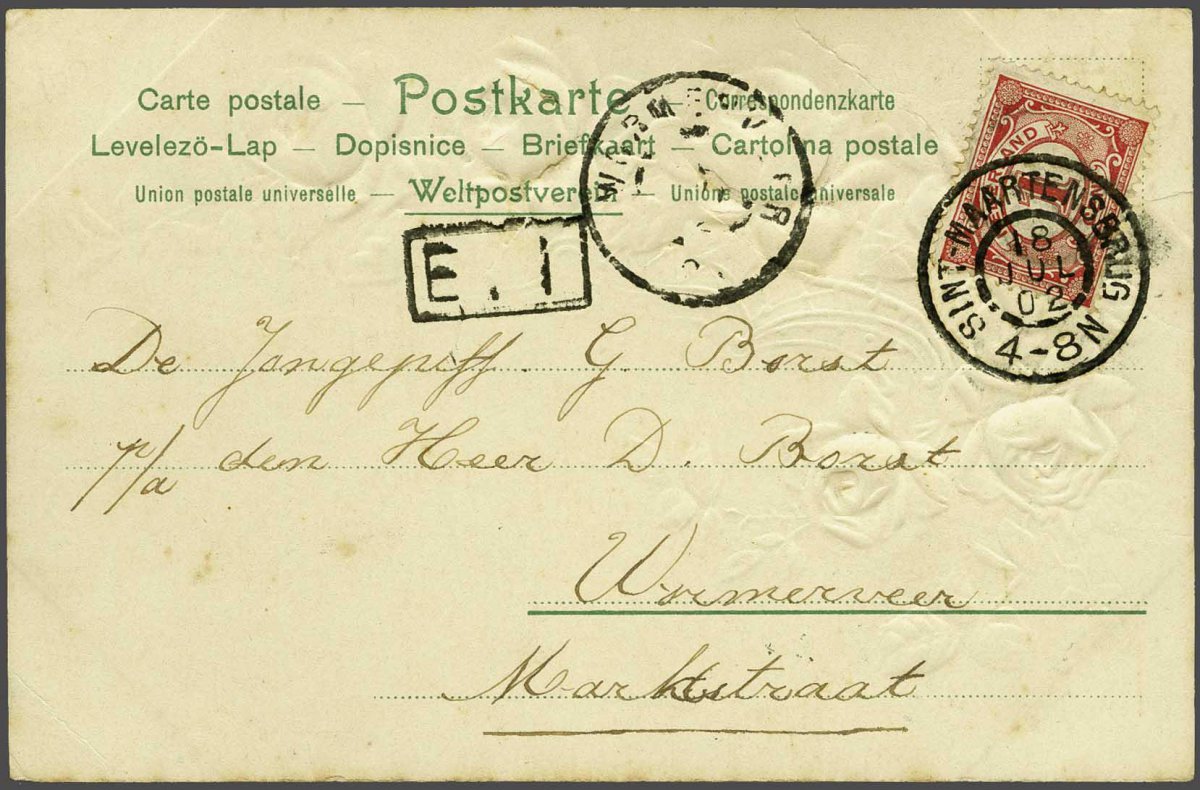 Carte postale — Postkarte — Correspondenzkarte
Levelezö-Lap — Dopisnice — Briefkaart — Cartolina postale
Union postale universelle — Weltpostverein — Unione postale universale
WORMERVEER
E. 1
SINT-MAARTENSBRUG
18
JUL
02
4-8N
De Jongejuff. G. Borst
p/a den Heer D. Borst
Wormerveer
Marktstraat